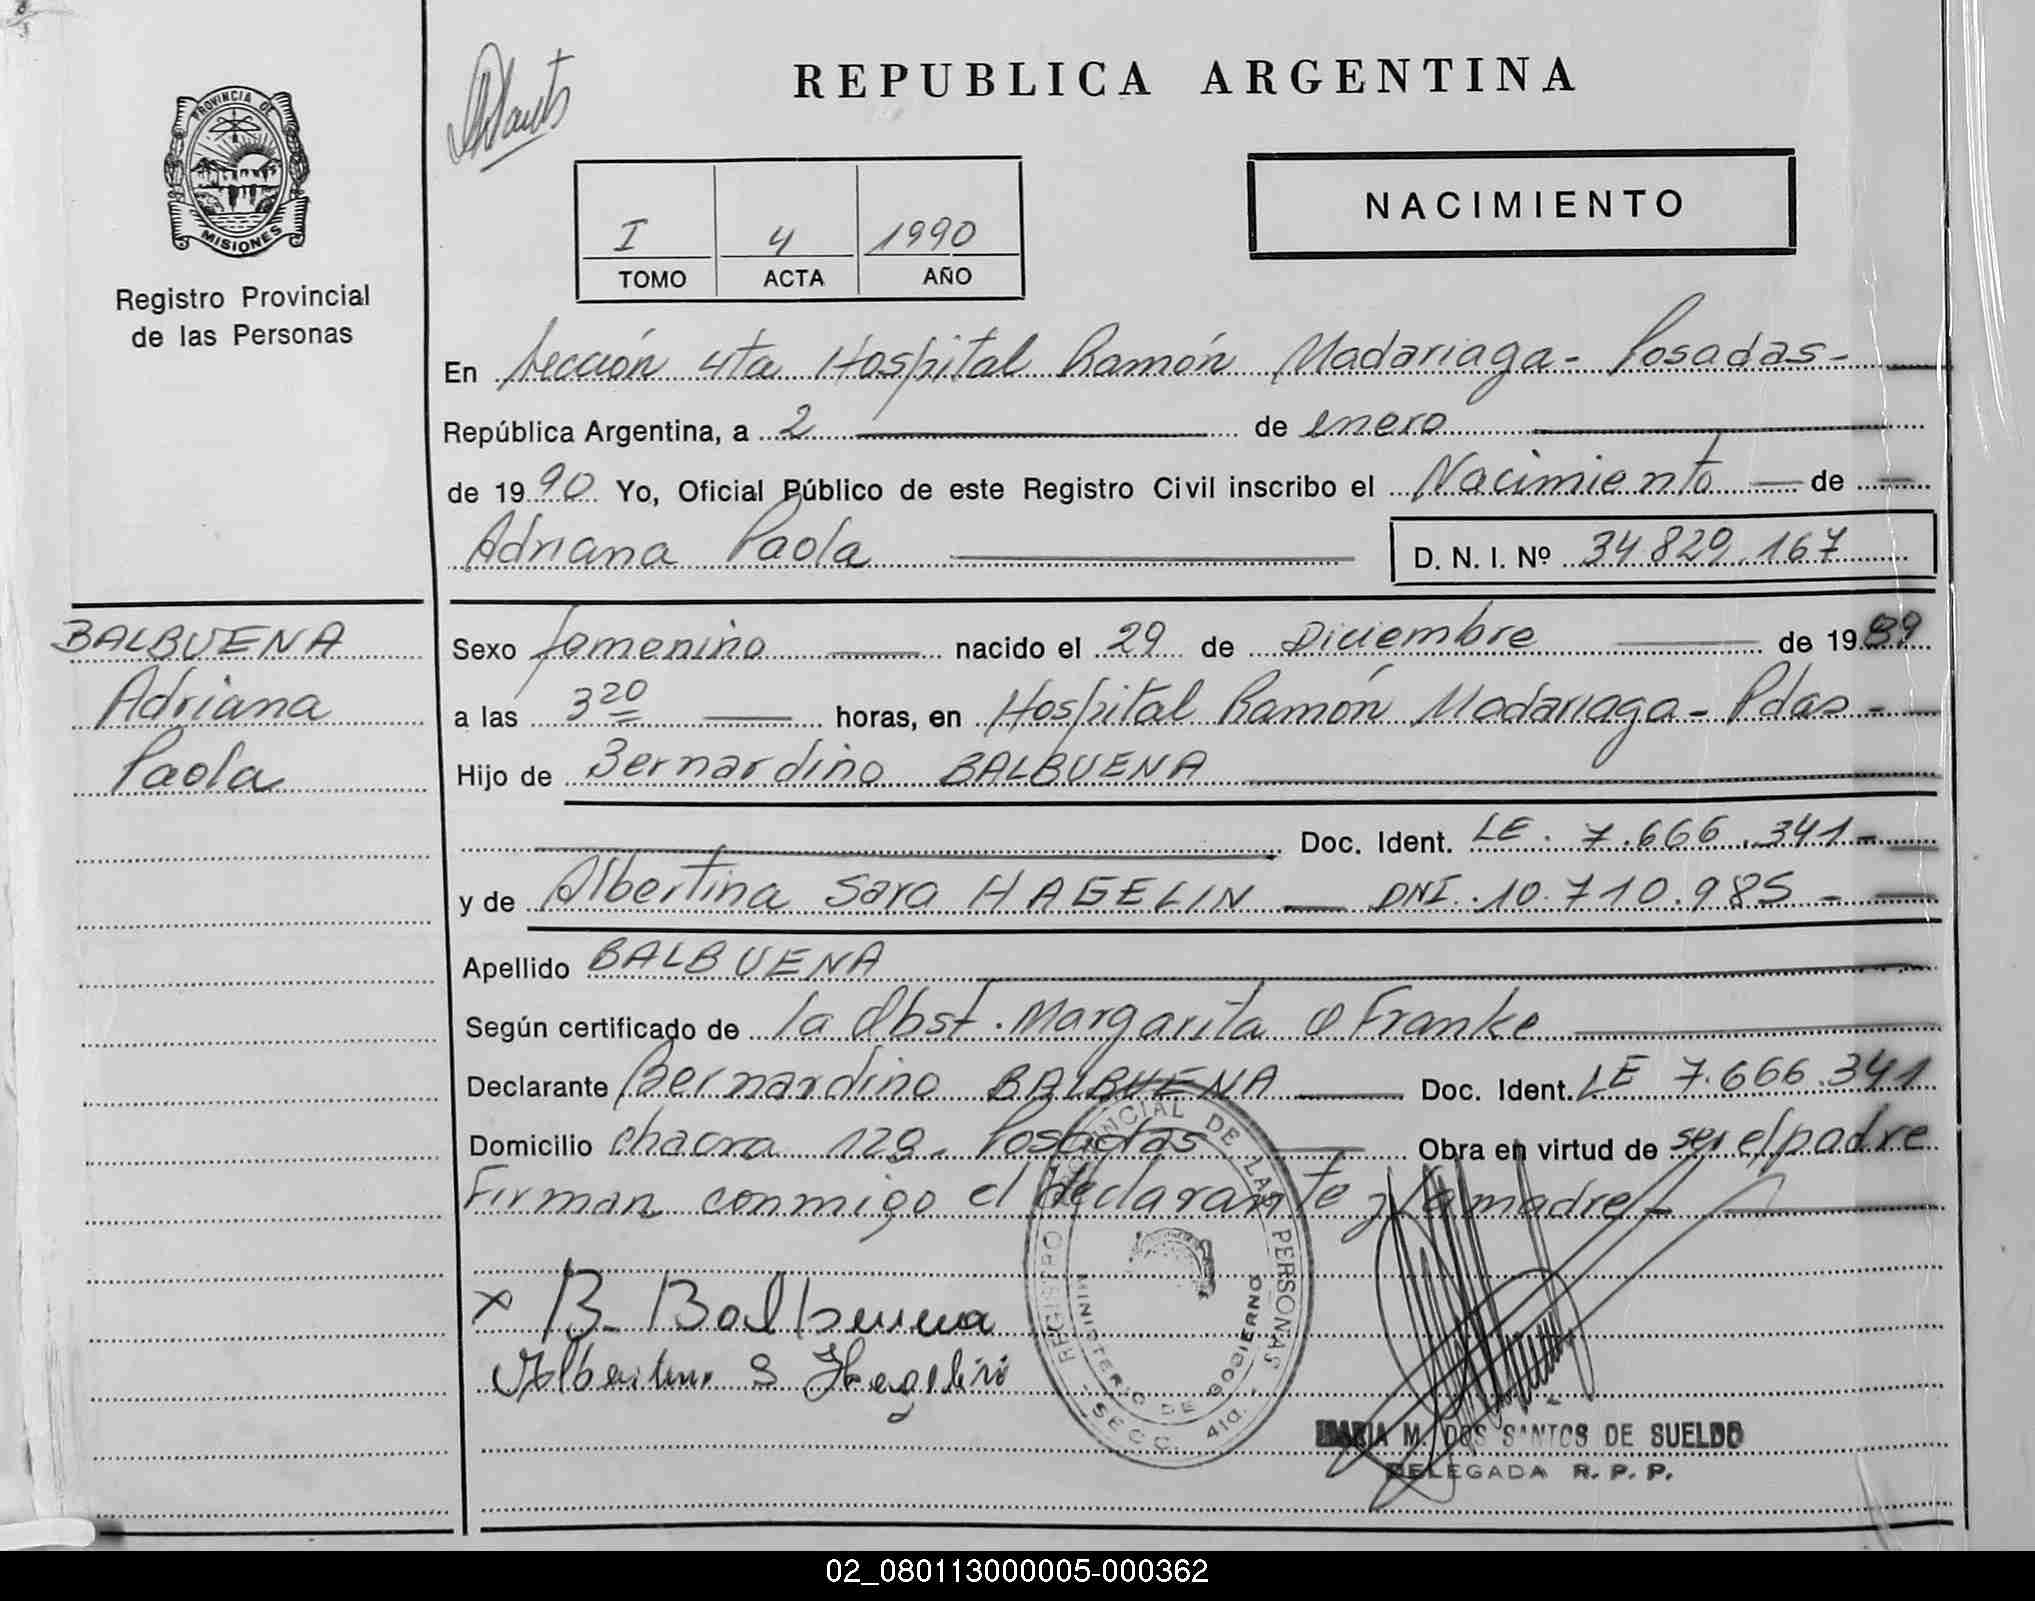 PROVINCIA DE
MISIONES
Registro Provincial
de las Personas
BALBUENA
Adriana
Paola
REPUBLICA ARGENTINA
NACIMIENTO
I 4 1990
TOMO ACTA AÑO
En Sección 4ta Hospital Ramón Madariaga - Posadas -
República Argentina, a 2 de enero
de 1990 Yo, Oficial Público de este Registro Civil inscribo el Nacimiento de
Adriana Paola D. N. I. Nº 34.829.167
Sexo femenino nacido el 29 de Diciembre de 1989
a las 3 20 horas, en Hospital Ramón Madariaga - Pdas -
Hijo de Bernardino BALBUENA
Doc. Ident. LE. 7.666.341 -
y de Albertina Sara HAGELIN DNI. 10.710.985 -
Apellido BALBUENA
Según certificado de la Obst. Margarita O Franke
Declarante Bernardino BALBUENA Doc. Ident. LE 7.666.341
Domicilio chacra 129. Posadas Obra en virtud de ser el padre
Firman conmigo el declarante y la madre -
x B. Balbuena
Albertina S Hagelin
REGISTRO PROVINCIAL DE LAS PERSONAS
MINISTERIO DE GOBIERNO
SECC. 4ta.
MARIA M. DOS SANTOS DE SUELDO
DELEGADA R. P. P.
02_080113000005-000362